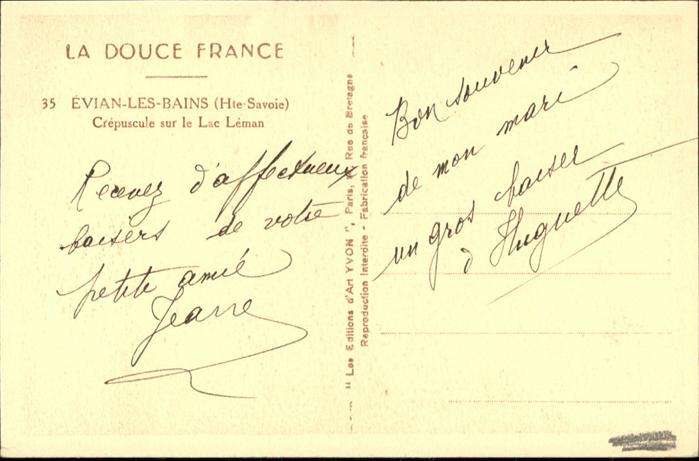 LA DOUCE FRANCE
35 ÉVIAN-LES-BAINS (Hte-Savoie)
Crépuscule sur le Lac Léman
Recevez d'affectueux
baisers de votre
petite amie
Jeanne
" Les Editions d'Art YVON ", Paris, Rue de Bretagne
Reproduction Interdite - Fabrication française
Bon souvenir
de mon mari
un gros baiser
d'Huguette